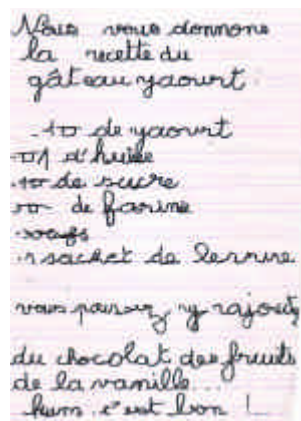 Nous vous donnons
la recette du
gâteau yaourt.
de yaourt
d'huile
de sucre
de farine
oeufs
1 sachet de levure
vous pouvez y rajouter
du chocolat des fruits
de la vanille...
hum c'est bon !